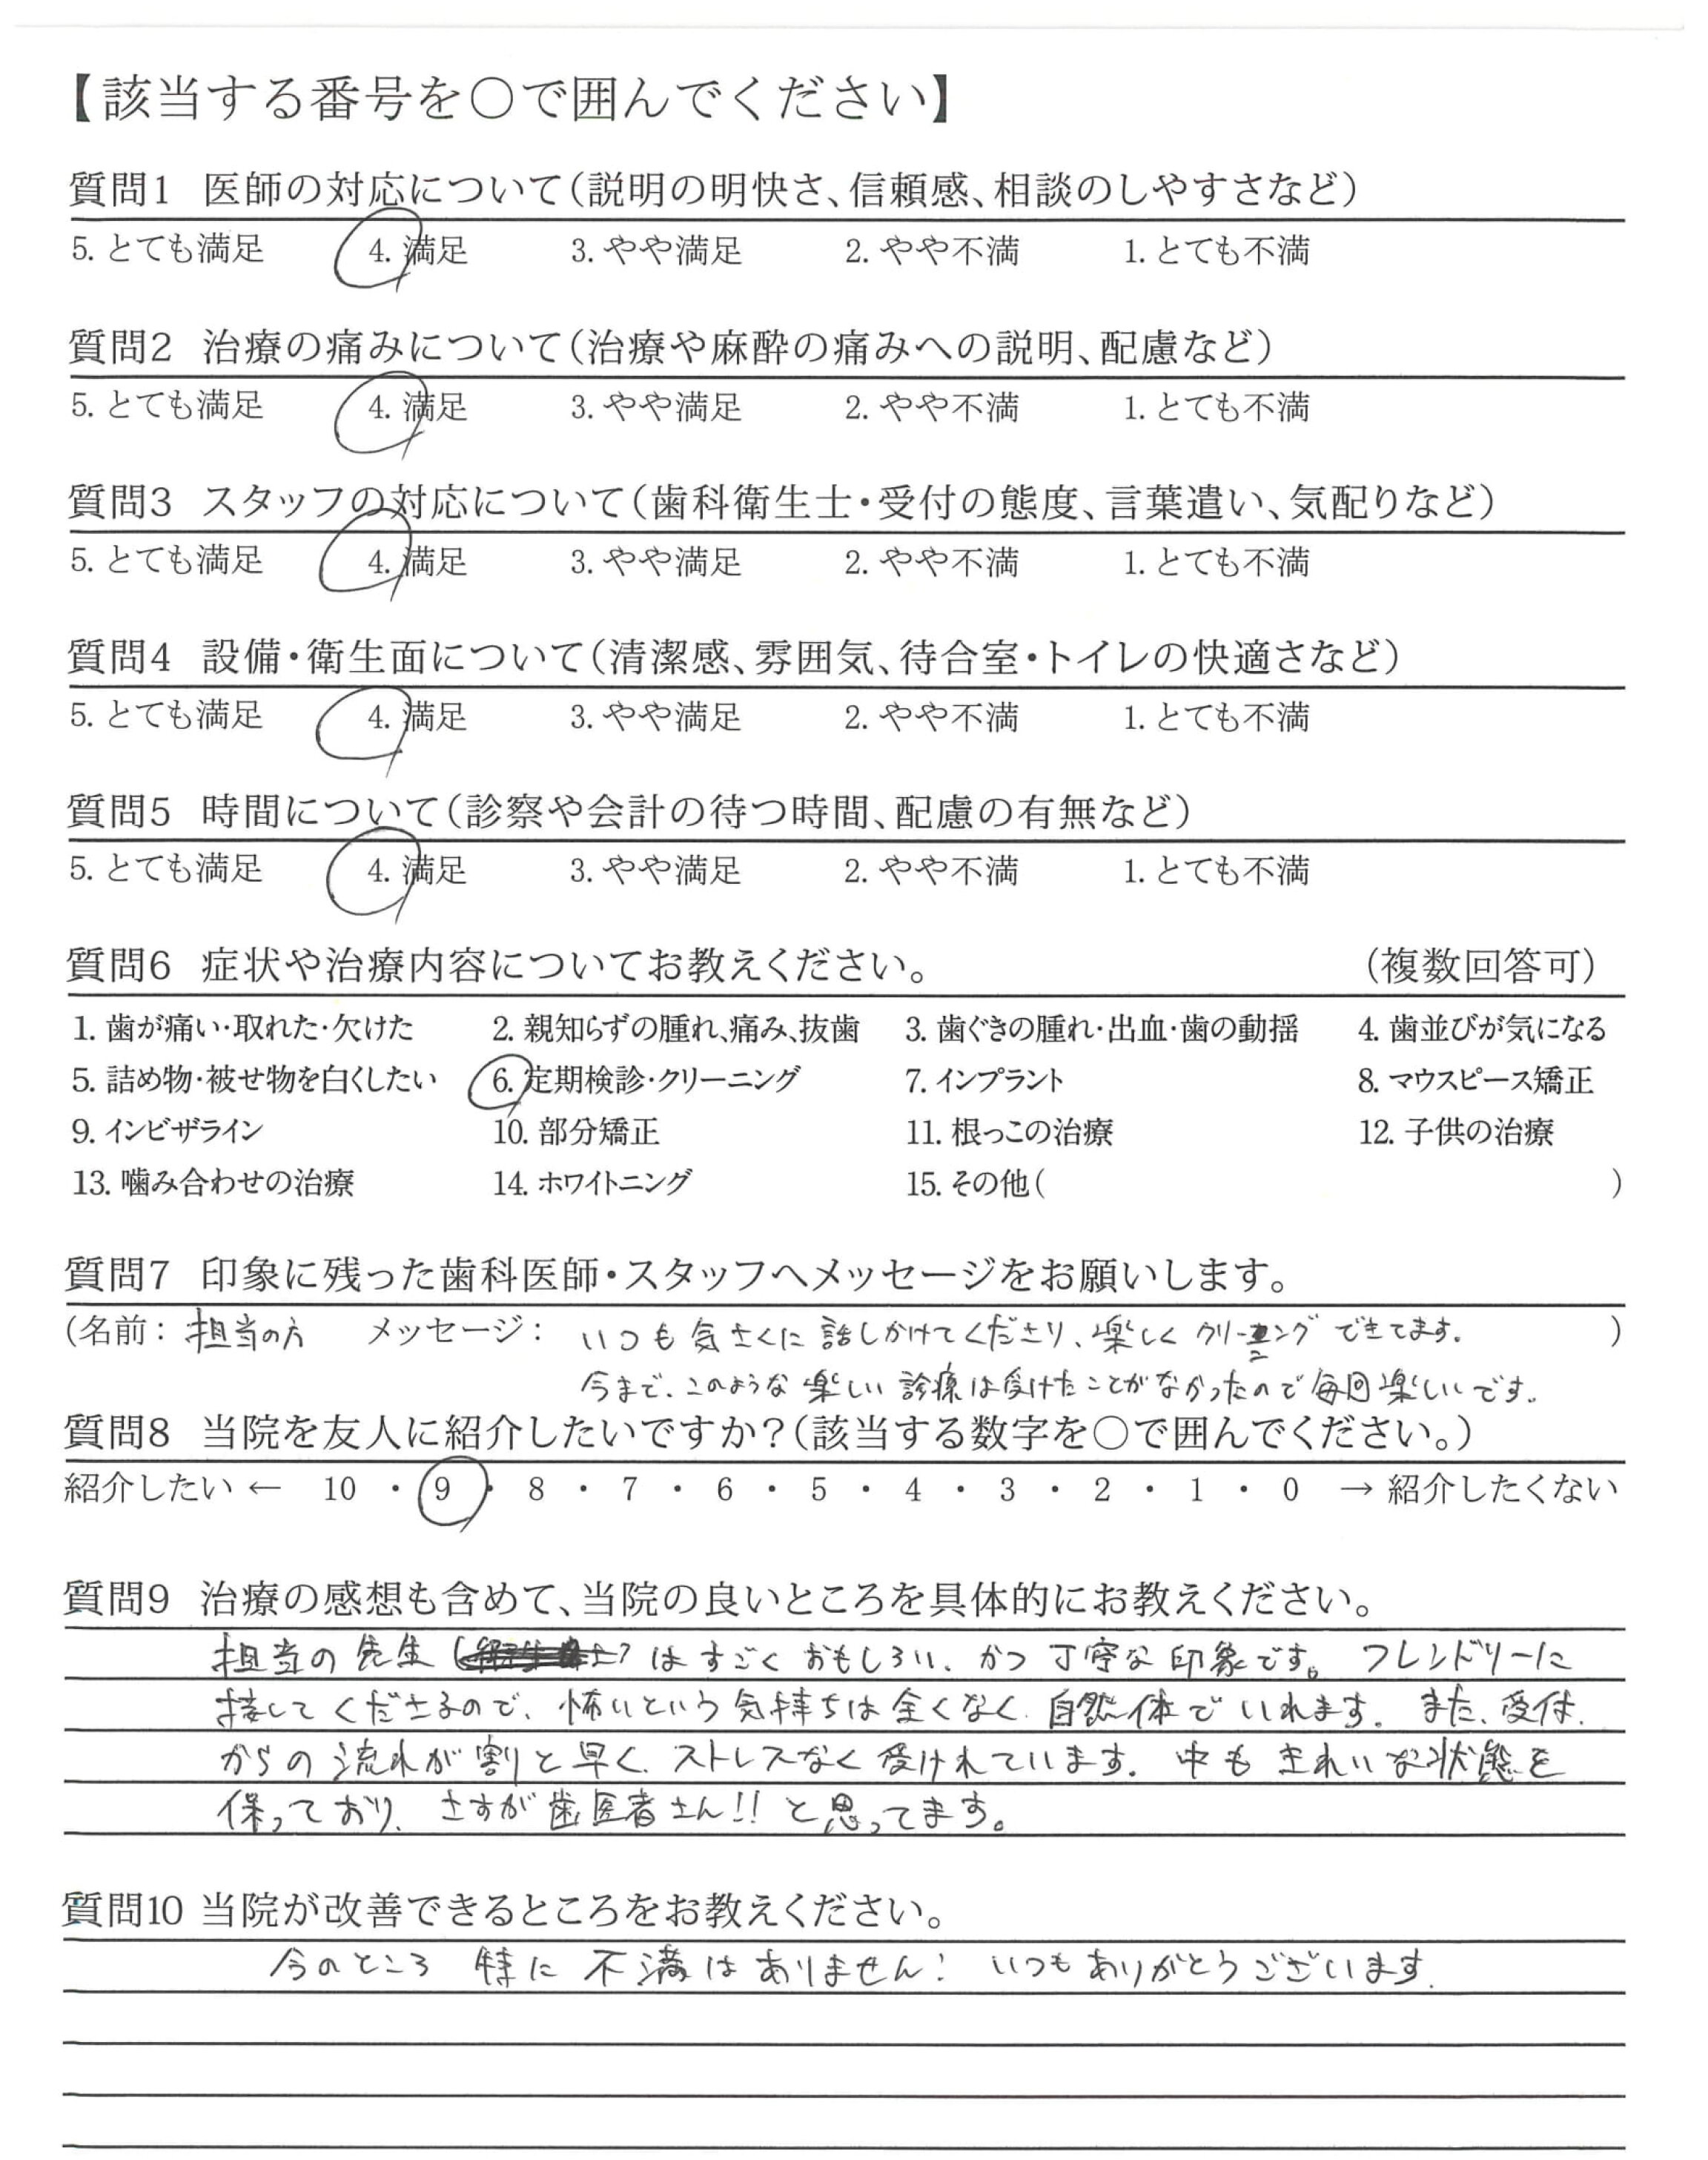 【該当する番号を○で囲んでください】
質問1 医師の対応について(説明の明快さ、信頼感、相談のしやすさなど)
5. とても満足 4. 満足 3. やや満足 2. やや不満 1. とても不満
質問2 治療の痛みについて(治療や麻酔の痛みへの説明、配慮など)
5. とても満足 4. 満足 3. やや満足 2. やや不満 1. とても不満
質問3 スタッフの対応について(歯科衛生士・受付の態度、言葉遣い、気配りなど)
5. とても満足 4. 満足 3. やや満足 2. やや不満 1. とても不満
質問4 設備・衛生面について(清潔感、雰囲気、待合室・トイレの快適さなど)
5. とても満足 4. 満足 3. やや満足 2. やや不満 1. とても不満
質問5 時間について(診察や会計の待つ時間、配慮の有無など)
5. とても満足 4. 満足 3. やや満足 2. やや不満 1. とても不満
質問6 症状や治療内容についてお教えください。 (複数回答可)
1. 歯が痛い・取れた・欠けた 2. 親知らずの腫れ、痛み、抜歯 3. 歯ぐきの腫れ・出血・歯の動揺 4. 歯並びが気になる
5. 詰め物・被せ物を白くしたい 6. 定期検診・クリーニング 7. インプラント 8. マウスピース矯正
9. インビザライン 10. 部分矯正 11. 根っこの治療 12. 子供の治療
13. 噛み合わせの治療 14. ホワイトニング 15. その他( )
質問7 印象に残った歯科医師・スタッフへメッセージをお願いします。
(名前: 担当の方 メッセージ: いつも気さくに話しかけてくださり、楽しくクリーニングできてます。 )
今まで、このような楽しい診療は受けたことがなかったので毎回楽しいです。
質問8 当院を友人に紹介したいですか?(該当する数字を○で囲んでください。)
紹介したい ← 10 ・ 9 ・ 8 ・ 7 ・ 6 ・ 5 ・ 4 ・ 3 ・ 2 ・ 1 ・ 0 → 紹介したくない
質問9 治療の感想も含めて、当院の良いところを具体的にお教えください。
担当の先生はすごくおもしろい、かつ丁寧な印象です。フレンドリーに
接してくださるので、怖いという気持ちは全くなく、自然体でいれます。また、受付
からの流れが割と早く、ストレスなく受けれています。中もきれいな状態を
保っており、さすが歯医者さん!!と思ってます。
質問10 当院が改善できるところをお教えください。
今のところ特に不満はありません! いつもありがとうございます。